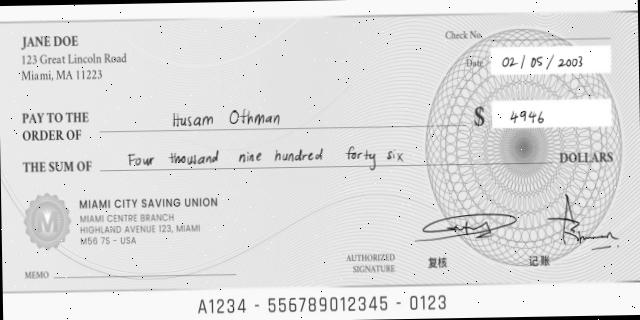 JANE DOE
123 Great Lincoln Road
Miami, MA 11223
Check No.
Date 02/05/2003
PAY TO THE
ORDER OF Husam Othman
$ 4946
THE SUM OF Four thousand nine hundred forty six DOLLARS
MIAMI CITY SAVING UNION
MIAMI CENTRE BRANCH
HIGHLAND AVENUE 123, MIAMI
M56 7S - USA
M
MEMO
AUTHORIZED
SIGNATURE
复核
记账
A1234 - 556789012345 - 0123